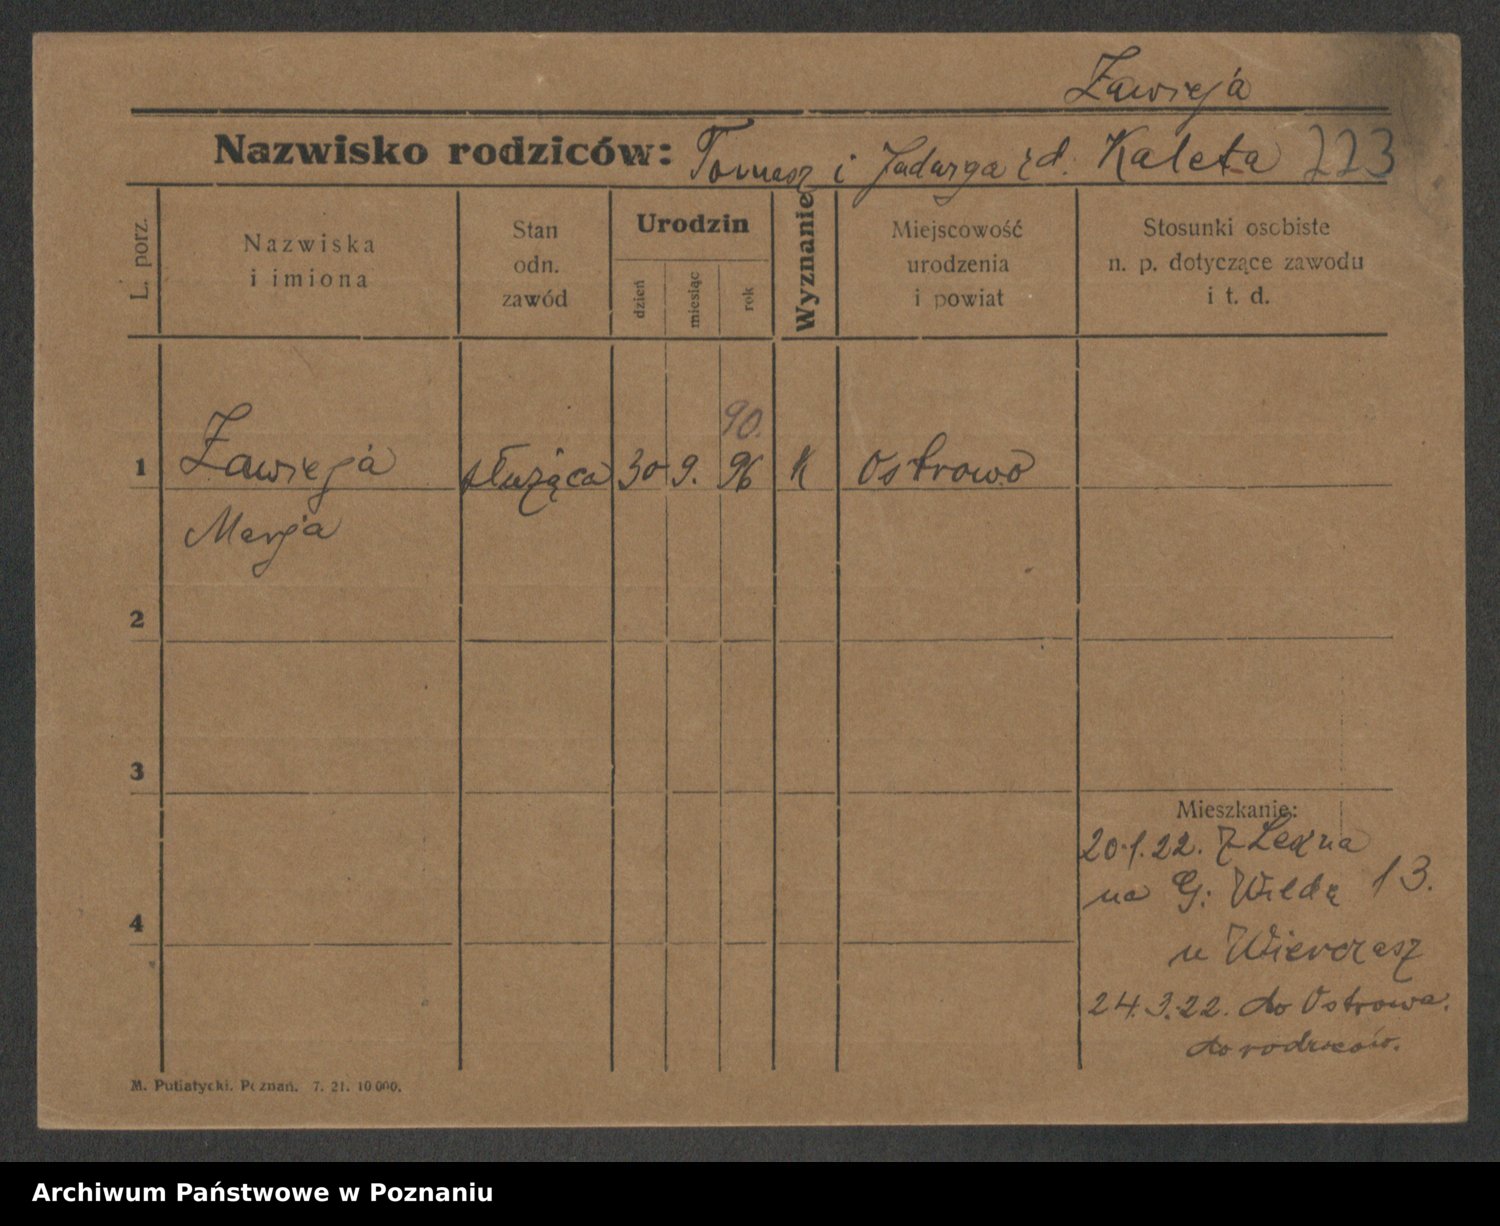 Zawieja
Nazwisko rodziców: Tomasz i Jadwiga zd. Kaleta 223
L. porz.
Nazwiska
i imiona
Stan
odn.
zawód
Urodzin
dzień
miesiąc
rok
Wyznanie
Miejscowość
urodzenia
i powiat
Stosunki osobiste
n. p. dotyczące zawodu
i t. d.
90.
1 Zawieja służąca 30 9. 96 K Ostrowo
Marja
2
3
Mieszkanie:
20.1.22. z Lekna
na G. Wildę 13.
4
u Wierczasz
24.3.22. do Ostrowa.
do rodziców.
M. Putiatycki. Poznań. 7. 21. 10 000.
Archiwum Państwowe w Poznaniu